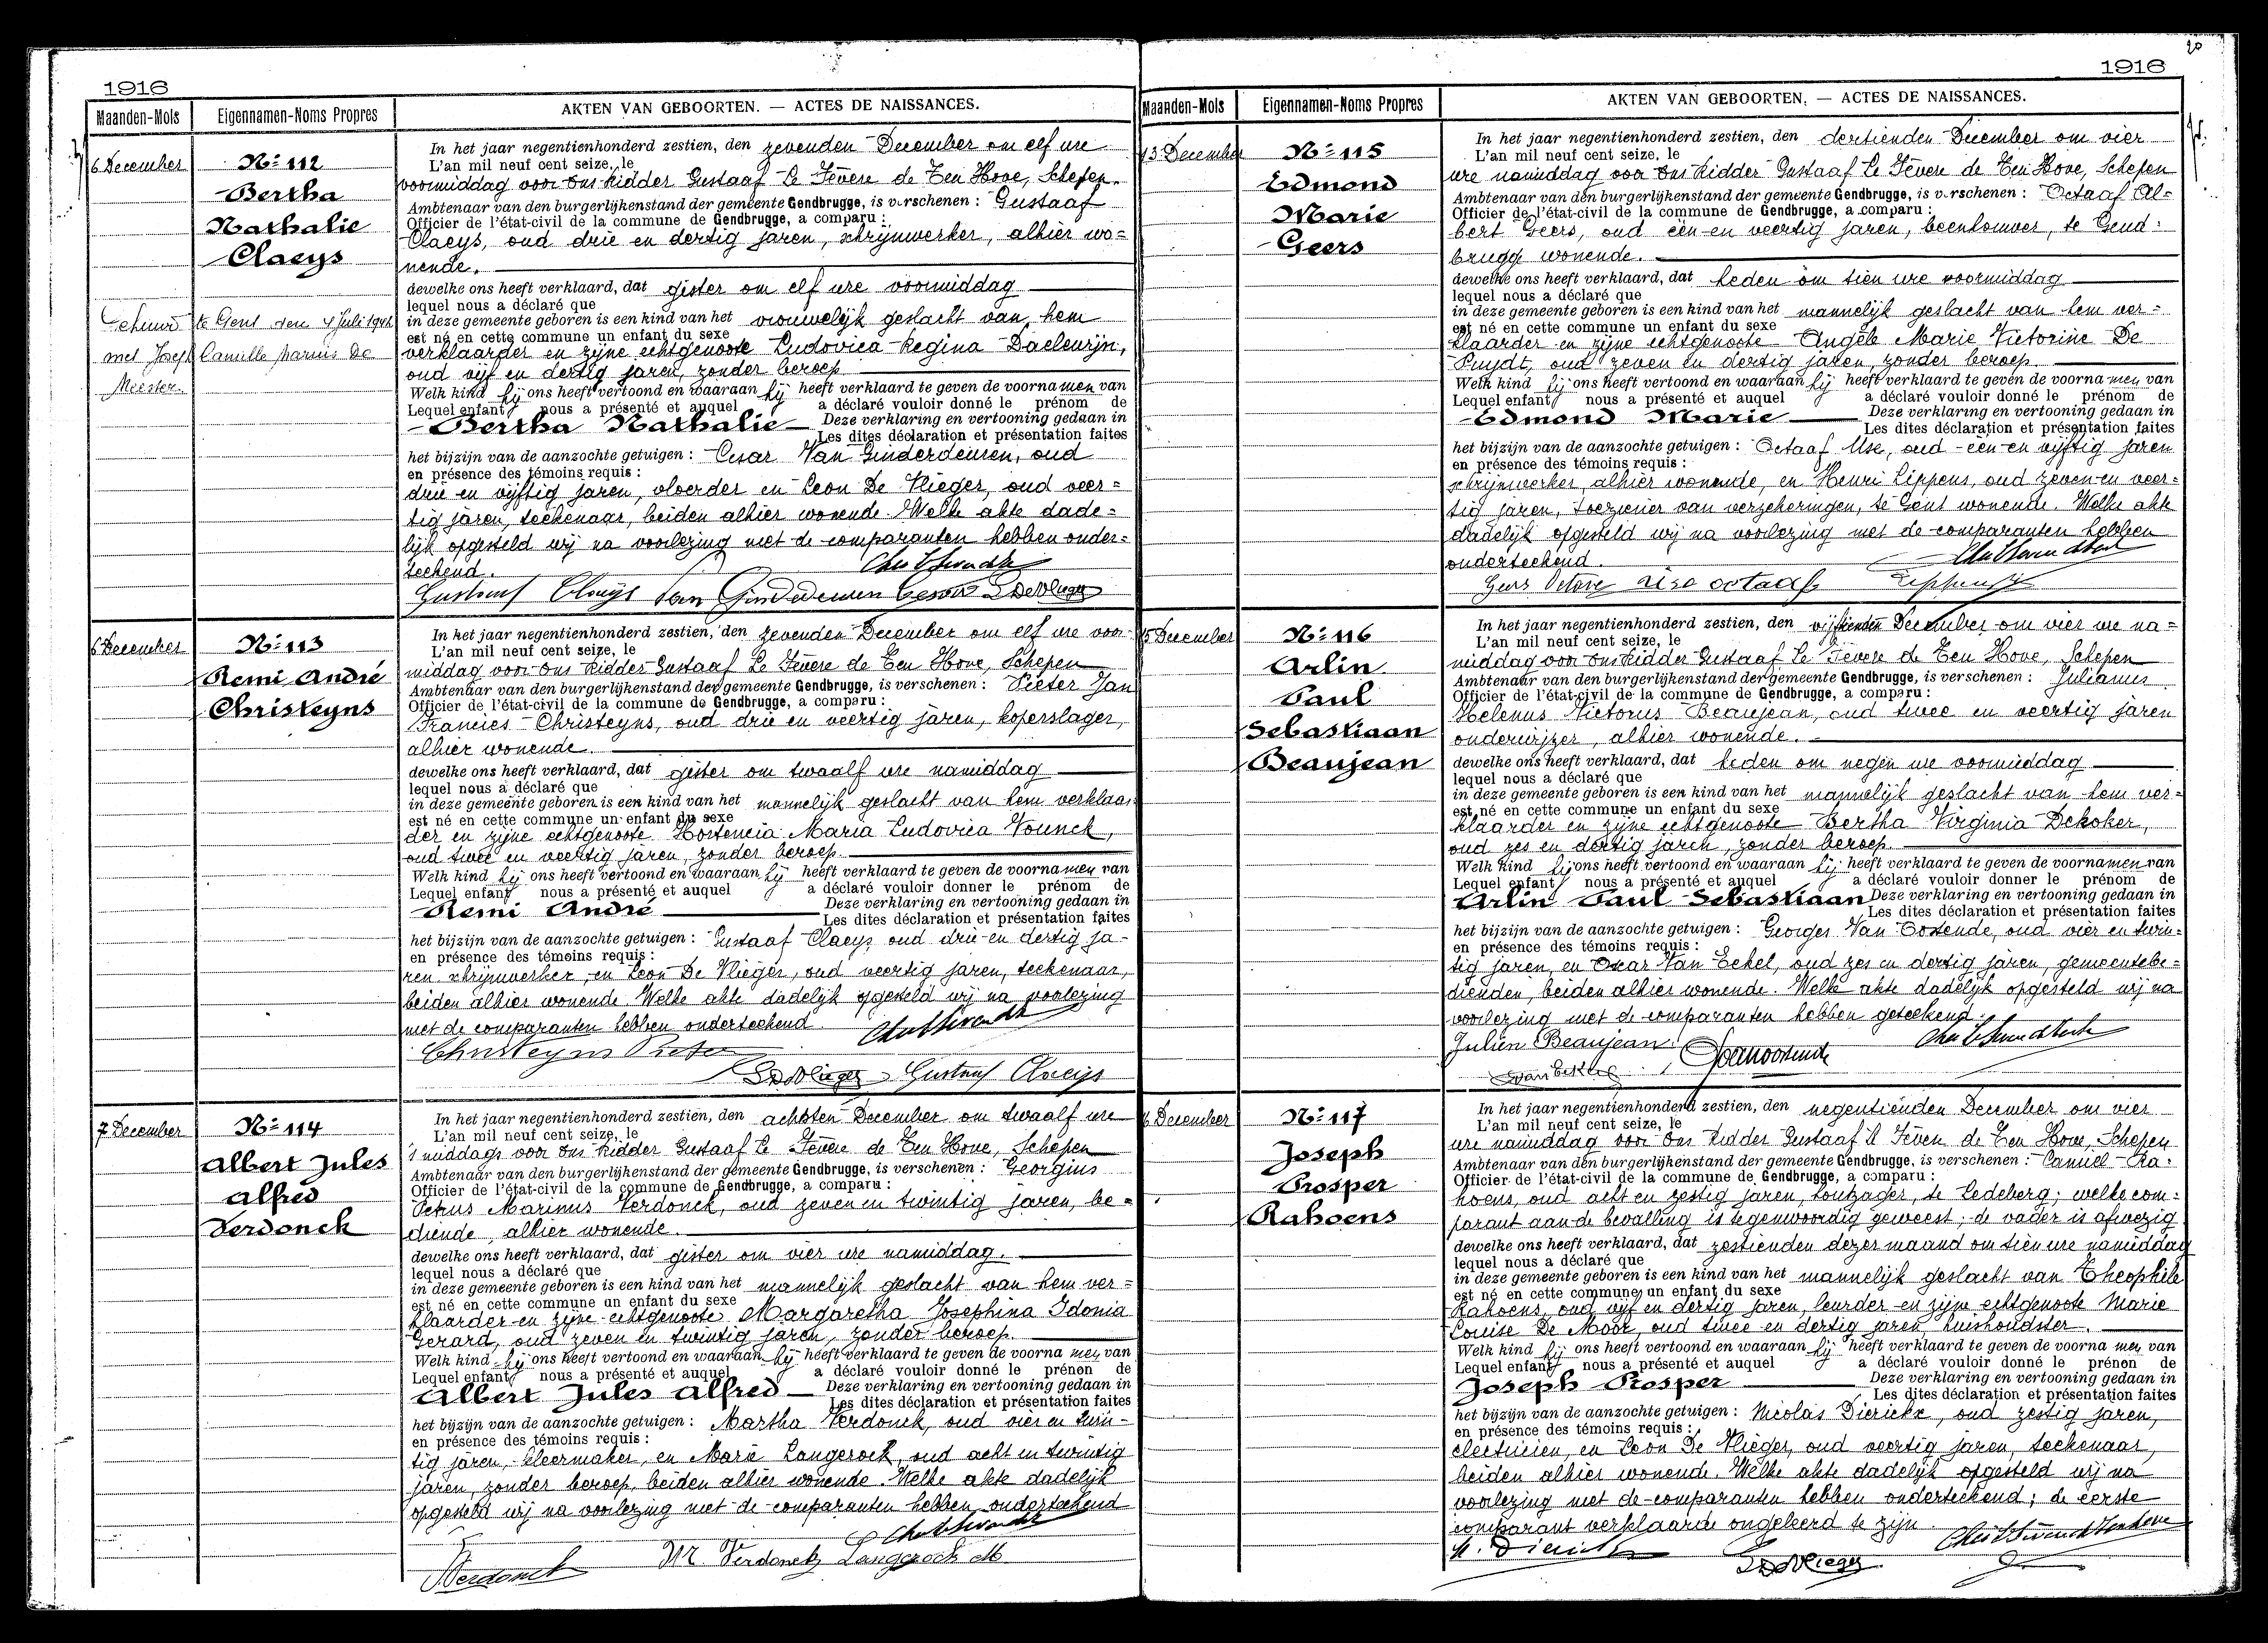 1916
Maanden-Mois
Eigennamen-Noms Propres
AKTEN VAN GEBOORTEN. — ACTES DE NAISSANCES.
6 December
Nº 112
Bertha
Nathalie
Claeys
Gehuwd te Gent den 4 Juli 1942
met Joseph Camille Marius De
Meester.
In het jaar negentienhonderd zestien, den zevenden December om elf ure
L'an mil neuf cent seize, le
voormiddag voor ons Ridder Gustaaf Le Fevere de Ten Hove, Schepen
Ambtenaar van den burgerlijkenstand der gemeente Gendbrugge, is verschenen : Gustaaf
Officier de l'état-civil de la commune de Gendbrugge, a comparu :
Claeys, oud drie en dertig jaren, schrijnwerker, alhier wo=
nende.
dewelke ons heeft verklaard, dat gister om elf ure voormiddag
lequel nous a déclaré que
in deze gemeente geboren is een kind van het vrouwelijk geslacht van hem
est né en cette commune un enfant du sexe
verklaarder en zijne echtgenoote Ludovica Regina Daeleurijn,
oud vijf en dertig jaren, zonder beroep
Welk kind hij ons heeft vertoond en waaraan hij heeft verklaard te geven de voornamen van
Lequel enfant nous a présenté et auquel a déclaré vouloir donné le prénom de
Bertha Nathalie Deze verklaring en vertooning gedaan in
Les dites déclaration et présentation faites
het bijzijn van de aanzochte getuigen : Cesar Van Ginderdeuren, oud
en présence des témoins requis :
drie en vijftig jaren, vloerder en Leon De Vlieger, oud veer=
tig jaren, teekenaar, beiden alhier wonende. Welke akte dade=
lijk opgesteld wij na voorlezing met de comparanten hebben onder=
teekend.
Gustaaf Claeys Van Ginderdeuren Cesar L De Vlieger
6 December
Nº 113
Remi André
Christeyns
In het jaar negentienhonderd zestien, den zevenden December om elf ure voor
L'an mil neuf cent seize, le
middag voor ons Ridder Gustaaf Le Fevere de Ten Hove, Schepen
Ambtenaar van den burgerlijkenstand der gemeente Gendbrugge, is verschenen : Pieter Jan
Officier de l'état-civil de la commune de Gendbrugge, a comparu :
Francies Christeyns, oud drie en veertig jaren, koperslager,
alhier wonende.
dewelke ons heeft verklaard, dat gister om twaalf ure namiddag
lequel nous a déclaré que
in deze gemeente geboren is een kind van het mannelijk geslacht van hem verklaar
est né en cette commune un enfant du sexe
der en zijne echtgenoote Hortencia Maria Ludovica Vounck,
oud twee en veertig jaren, zonder beroep.
Welk kind hij ons heeft vertoond en waaraan hij heeft verklaard te geven de voornamen van
Lequel enfant nous a présenté et auquel a déclaré vouloir donner le prénom de
Remi André Deze verklaring en vertooning gedaan in
Les dites déclaration et présentation faites
het bijzijn van de aanzochte getuigen : Gustaaf Claeys oud drie en dertig ja=
en présence des témoins requis :
ren schrijnwerker, en Leon De Vlieger, oud veertig jaren, teekenaar,
beiden alhier wonende. Welke akte dadelijk opgesteld wij na voorlezing
met de comparanten hebben onderteekend.
Christeyns Pieter
L De Vlieger Gustaaf Claeys
7 December
Nº 114
Albert Jules
Alfred
Verdonck
In het jaar negentienhonderd zestien, den achtsten December om twaalf ure
L'an mil neuf cent seize, le
's middags voor ons Ridder Gustaaf Le Fevere de Ten Hove, Schepen
Ambtenaar van den burgerlijkenstand der gemeente Gendbrugge, is verschenen : Georgius
Officier de l'état-civil de la commune de Gendbrugge, a comparu :
Petrus Marinus Verdonck, oud zeven en twintig jaren, be=
diende, alhier wonende.
dewelke ons heeft verklaard, dat gister om vier ure namiddag.
lequel nous a déclaré que
in deze gemeente geboren is een kind van het mannelijk geslacht van hem ver=
est né en cette commune un enfant du sexe
klaarder en zijne echtgenoote Margaretha Josephina Idonia
Gerard, oud zeven en twintig jaren, zonder beroep.
Welk kind hij ons heeft vertoond en waaraan hij heeft verklaard te geven de voornamen van
Lequel enfant nous a présenté et auquel a déclaré vouloir donné le prénon de
Albert Jules Alfred Deze verklaring en vertooning gedaan in
Les dites déclaration et présentation faites
het bijzijn van de aanzochte getuigen : Martha Verdonck, oud vier en twin=
en présence des témoins requis :
tig jaren, kleermaker, en Marie Langerock, oud acht en twintig
jaren, zonder beroep, beiden alhier wonende. Welke akte dadelijk
opgesteld wij na voorlezing met de comparanten hebben onderteekend
Verdonck Mr. Verdonck Langerock M
20
1916
Maanden-Mois
Eigennamen-Noms Propres
AKTEN VAN GEBOORTEN. — ACTES DE NAISSANCES.
13 December
Nº 115
Edmond
Marie
Geers
In het jaar negentienhonderd zestien, den dertienden December om vier
L'an mil neuf cent seize, le
ure namiddag voor ons Ridder Gustaaf Le Fevere de Ten Hove, Schepen
Ambtenaar van den burgerlijkenstand der gemeente Gendbrugge, is verschenen : Octaaf Al=
Officier de l'état-civil de la commune de Gendbrugge, a comparu :
bert Geers, oud een en veertig jaren, beenhouwer, te Gend=
brugge wonende.
dewelke ons heeft verklaard, dat heden om tien ure voormiddag
lequel nous a déclaré que
in deze gemeente geboren is een kind van het mannelijk geslacht van hem ver=
est né en cette commune un enfant du sexe
klaarder en zijne echtgenoote Angèle Marie Victorine De
Puydt, oud zeven en dertig jaren, zonder beroep.
Welk kind hij ons heeft vertoond en waaraan hij heeft verklaard te geven de voornamen van
Lequel enfant nous a présenté et auquel a déclaré vouloir donné le prénom de
Edmond Marie Deze verklaring en vertooning gedaan in
Les dites déclaration et présentation faites
het bijzijn van de aanzochte getuigen : Octaaf Use, oud een en vijftig jaren
en présence des témoins requis :
schrijnwerker, alhier wonende, en Henri Lippens, oud zeven en veer=
tig jaren, toeziener van verzekeringen, te Gent wonende. Welke akte
dadelijk opgesteld wij na voorlezing met de comparanten hebben
onderteekend.
Geers Octave Use octaaf Lippens
15 December
Nº 116
Arlin
Paul
Sebastiaan
Beaujean
In het jaar negentienhonderd zestien, den vijftienden December om vier ure na=
L'an mil neuf cent seize, le
middag voor ons Ridder Gustaaf Le Fevere de Ten Hove, Schepen
Ambtenaar van den burgerlijkenstand der gemeente Gendbrugge, is verschenen : Julianus
Officier de l'état-civil de la commune de Gendbrugge, a comparu :
Helenus Victorus Beaujean, oud twee en veertig jaren
onderwijzer, alhier wonende.
dewelke ons heeft verklaard, dat heden om negen ure voormiddag
lequel nous a déclaré que
in deze gemeente geboren is een kind van het mannelijk geslacht van hem ver=
est né en cette commune un enfant du sexe
klaarder en zijne echtgenoote Bertha Virginia Dekoker,
oud zes en dertig jaren, zonder beroep.
Welk kind hij ons heeft vertoond en waaraan hij heeft verklaard te geven de voornamen van
Lequel enfant nous a présenté et auquel a déclaré vouloir donner le prénom de
Arlin Paul Sebastiaan Deze verklaring en vertooning gedaan in
Les dites déclaration et présentation faites
het bijzijn van de aanzochte getuigen : Georges Van Oostende, oud vier en twin=
en présence des témoins requis :
tig jaren, en Oscar Van Eekel, oud zes en dertig jaren, gemeentebe=
dienden, beiden alhier wonende. Welke akte dadelijk opgesteld wij na
voorlezing met de comparanten hebben geteekend.
Julien Beaujean
16 December
Nº 117
Joseph
Prosper
Rahoens
In het jaar negentienhonderd zestien, den negentienden December om vier
L'an mil neuf cent seize, le
ure namiddag voor ons Ridder Gustaaf le Fevere de Ten Hove, Schepen
Ambtenaar van den burgerlijkenstand der gemeente Gendbrugge, is verschenen : Camiel Ra=
Officier de l'état-civil de la commune de Gendbrugge, a comparu :
hoens, oud acht en zestig jaren, houtzager, te Ledeberg; welke com=
parant aan de bevalling is tegenwoordig geweest; de vader is afwezig
dewelke ons heeft verklaard, dat zestienden dezer maand om tien ure namiddag
lequel nous a déclaré que
in deze gemeente geboren is een kind van het mannelijk geslacht van Theophile
est né en cette commune un enfant du sexe
Rahoens, oud vijf en dertig jaren, leurder en zijne echtgenoote Marie
Louise De Moor, oud twee en dertig jaren huishoudster.
Welk kind hij ons heeft vertoond en waaraan hij heeft verklaard te geven de voornamen van
Lequel enfant nous a présenté et auquel a déclaré vouloir donné le prénon de
Joseph Prosper Deze verklaring en vertooning gedaan in
Les dites déclaration et présentation faites
het bijzijn van de aanzochte getuigen : Nicolas Dierickx, oud zestig jaren,
en présence des témoins requis :
electricien, en Leon De Vlieger, oud veertig jaren, teekenaar,
beiden alhier wonende. Welke akte dadelijk opgesteld wij na
voorlezing met de comparanten hebben onderteekend; de eerste
comparant verklaarde ongeleerd te zijn.
N. Dierickx L De Vlieger